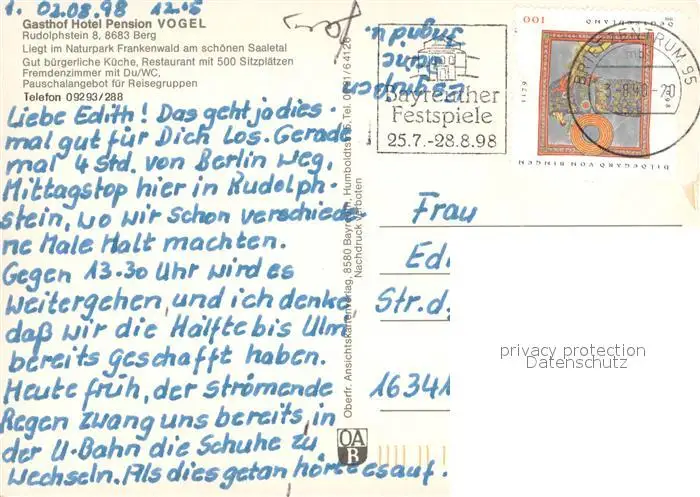 1. 02.08.98 12.15
Gasthof Hotel Pension VOGEL
Rudolphstein 8, 8683 Berg
Liegt im Naturpark Frankenwald am schönen Saaletal
Gut bürgerliche Küche, Restaurant mit 500 Sitzplätzen
Fremdenzimmer mit Du/WC,
Pauschalangebot für Reisegruppen
Telefon 09293/288
Liebe Edith! Das geht ja dies-
mal gut für Dich los. Gerade
mal 4 Std. von Berlin weg,
Mittagstop hier in Rudolph-
stein, wo wir schon verschiede-
ne Male Halt machten.
Gegen 13.30 Uhr wird es
weitergehen, und ich denke,
daß wir die Hälfte bis Ulm
bereits geschafft haben.
Heute früh, der strömende
Regen zwang uns bereits, in
der U-Bahn die Schuhe zu
wechseln. Als dies getan hörte es auf.
Oberfr. Ansichtskartenverlag, 8580 Bayreuth, Humboldtstr.
Nachdruck verboten
OA
B
Bayreuther
Festspiele
25.7.-28.8.98
BRIEFZENTRUM 95
3.-8.98-20
100
DEUTSCHLAND
1179
1998
HILDEGARD VON BINGEN
Frau
Edi
Str.d.
16341
privacy protection
Datenschutz